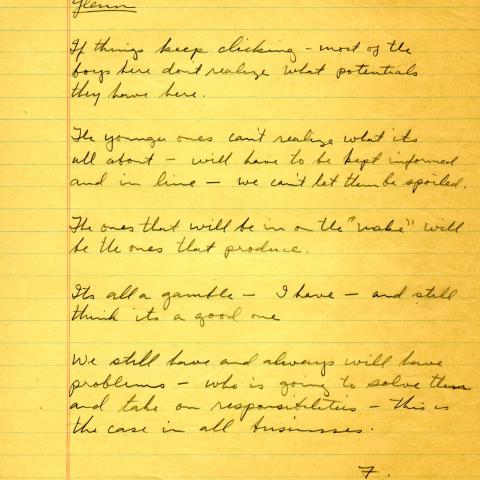 Glenn
If things keep clicking - most of the
boys here don't realize what potentials
they have here.
The younger ones can't realize what its
all about - will have to be kept informed
and in line - we can't let them be spoiled.
The ones that will be in on the "make" will
be the ones that produce.
Its all a gamble - I have - and still
think its a good one
We still have and always will have
problems - who is going to solve them
and take on responsibilities - this is
the case in all businesses.
F.